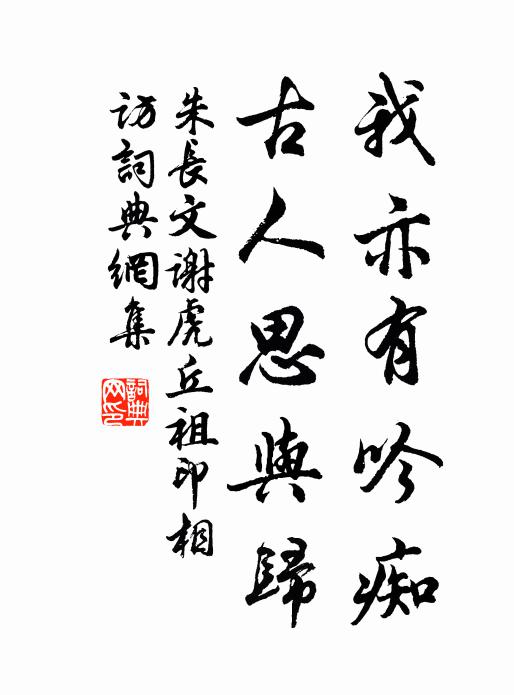 我亦有吟痴
古人思與歸
朱長文謝虎丘祖印相
訪詞典網集
詞典
网印